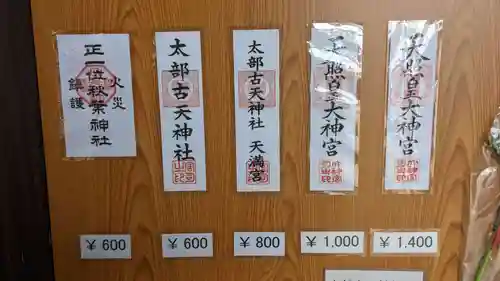 正一位秋葉神社
火災
鎮護
太部古天神社
太部古天神社 天満宮
天照皇大神宮
天照皇大神宮
¥ 600
¥ 600
¥ 800
¥ 1,000
¥ 1,400